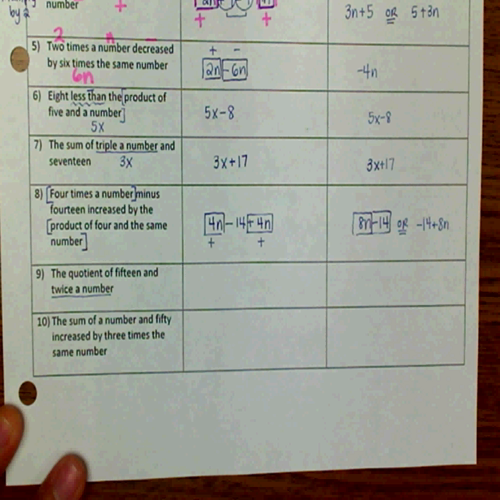 by 2
number
+
+
+
3n+5 OR 5+3n
2 n −
5) Two times a number decreased
by six times the same number
6n
+ −
2n −6n
-4n
6) Eight less than the [product of
five and a number]
5x
5x−8
5x-8
7) The sum of triple a number and
seventeen 3x
3x+17
3x+17
8) [Four times a number] minus
fourteen increased by the
[product of four and the same
number]
4n −14 +4n
+ +
8n−14 OR -14+8n
9) The quotient of fifteen and
twice a number
10) The sum of a number and fifty
increased by three times the
same number